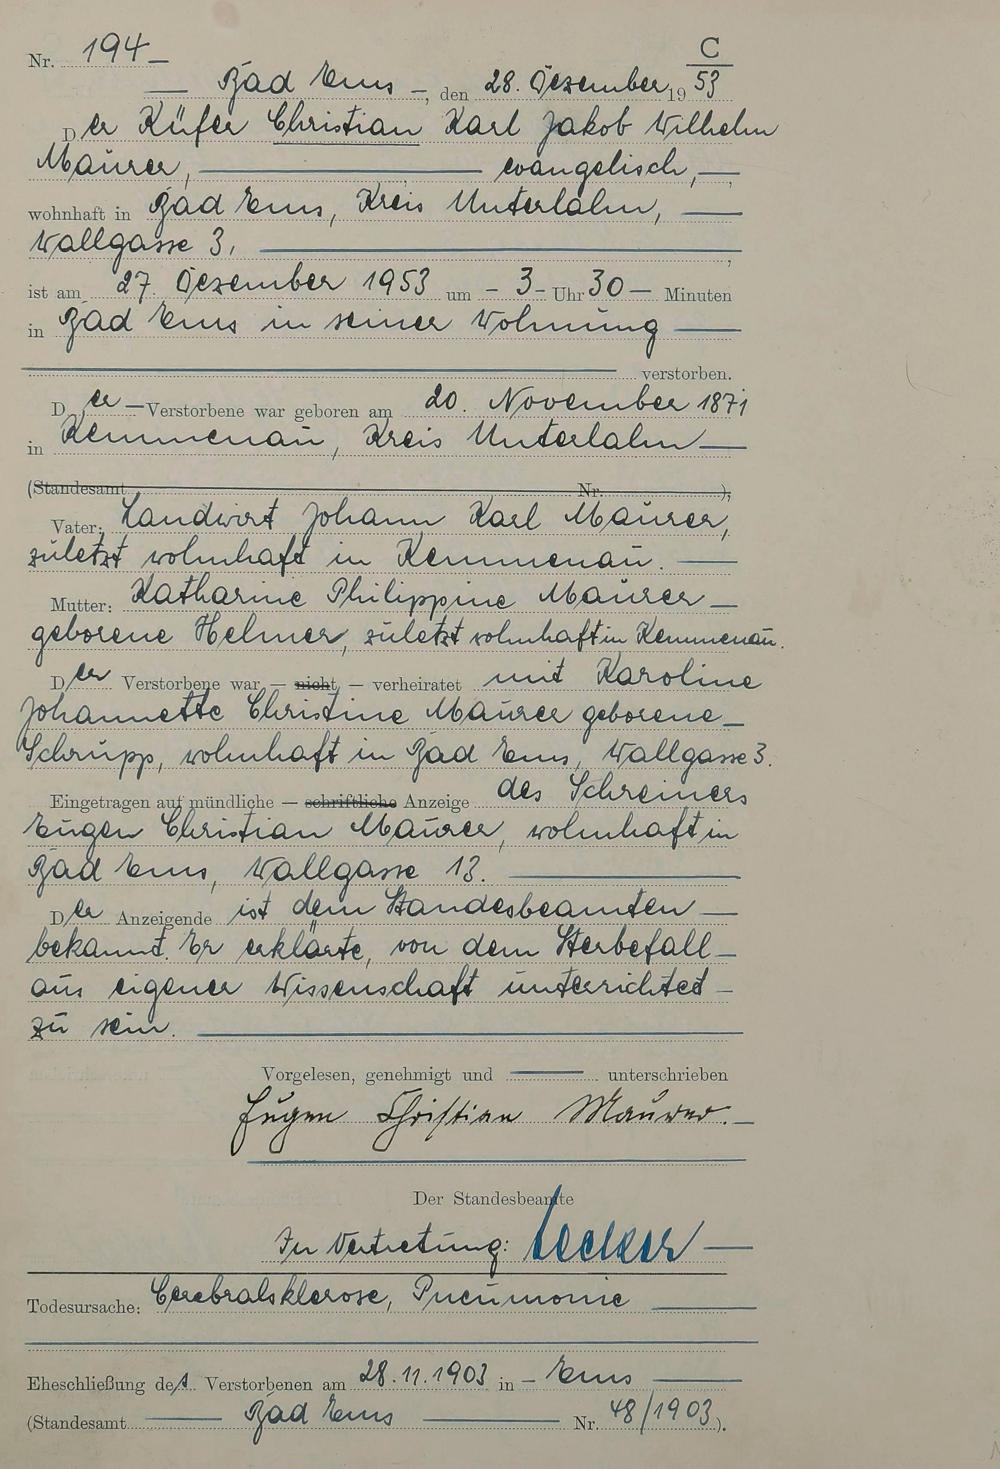 Nr. 194 C
Bad Ems, den 28. Dezember 1953
Der Küfer Christian Karl Jakob Wilhelm
Maurer, evangelisch,
wohnhaft in Bad Ems, Kreis Unterlahn,
Wallgasse 3,
ist am 27. Dezember 1953 um - 3 - Uhr 30 - Minuten
in Bad Ems in seiner Wohnung
verstorben.
Der Verstorbene war geboren am 20. November 1871
in Kemmenau, Kreis Unterlahn
(Standesamt Nr. ),
Vater: Landwirt Johann Karl Maurer,
zuletzt wohnhaft in Kemmenau.
Mutter: Katharine Philippine Maurer
geborene Helmer, zuletzt wohnhaft in Kemmenau.
Der Verstorbene war — nicht — verheiratet mit Karoline
Johannette Christine Maurer geborene
Schrupp, wohnhaft in Bad Ems, Wallgasse 3.
Eingetragen auf mündliche — schriftliche Anzeige des Schreiners
Eugen Christian Maurer, wohnhaft in
Bad Ems, Wallgasse 13.
Der Anzeigende ist dem Standesbeamten
bekannt. Er erklärte, von dem Sterbefall
aus eigener Wissenschaft unterrichtet
zu sein.
Vorgelesen, genehmigt und unterschrieben
Eugen Christian Maurer.
Der Standesbeamte
In Vertretung:
Todesursache: Cerebralsklerose, Pneumonie
Eheschließung des Verstorbenen am 28.11.1903 in - Ems
(Standesamt Bad Ems Nr. 48/1903).